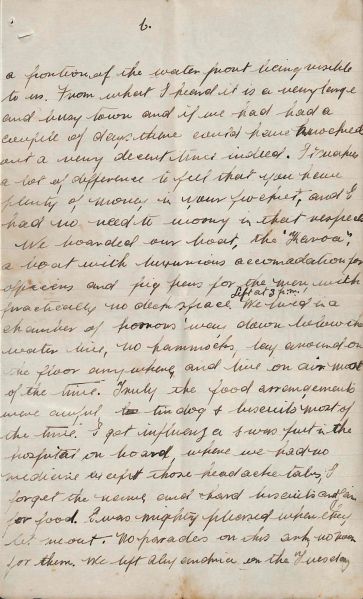 6.
a portion of the water front being visible
to us. From what I heard it is a very large
and busy town and if we had had a
couple of days there could have knocked
out a very decent time indeed. It makes
a lot of difference to feel that you have
plenty of money in your pocket, and I
had no need to worry in that respect.
We boarded our boat, the "Karoa",
a boat with luxurious accomodation for
officers and pig pens for the men with
practically no deck space. We lived in a
Left at 3 p.m.
chamber of horrors way down below the
water line, no hammocks lay around on
the floor anywhere, and live on air most
of the time. Truly the food arrangements
were awful tindog & biscuits most of
the time. I got influenza & was put in the
hospital on board, where we had no
medicine except those headache tabs, I
forget the name, and hard biscuits and
for food. I was mighty pleased when they
let me out. No parades on this as no room
for them. We left Alexandria on the Tuesday